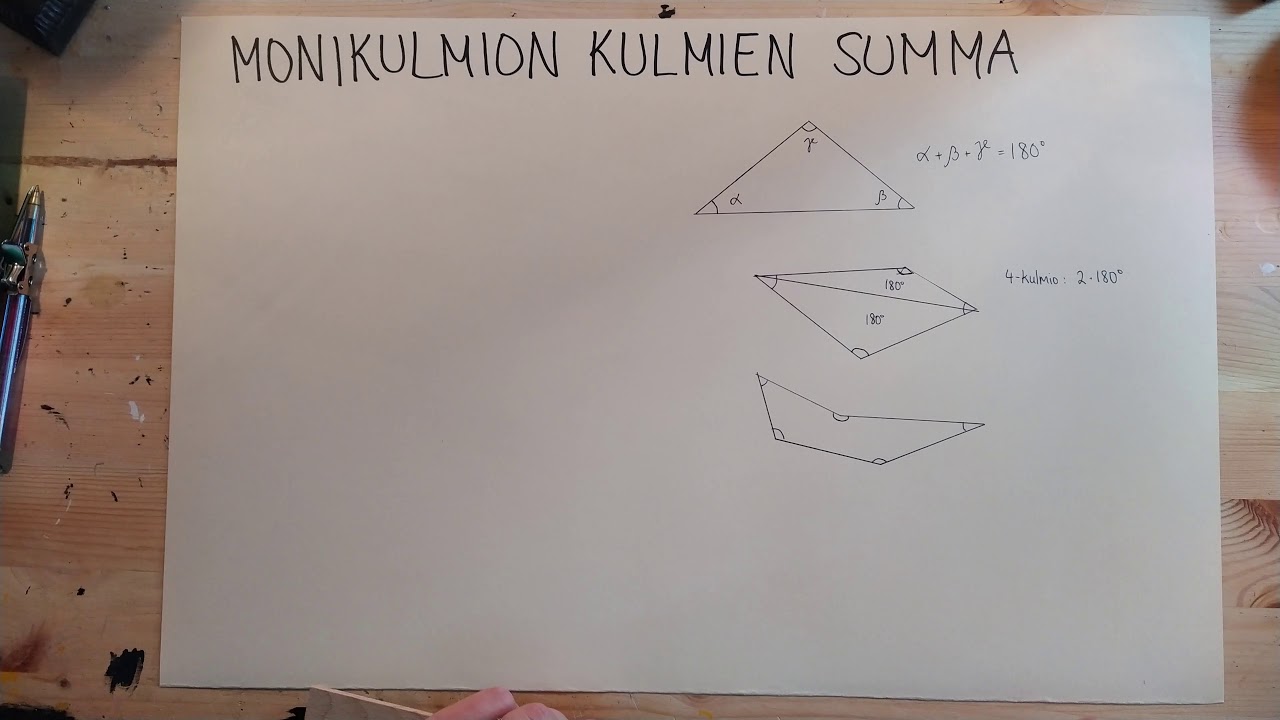 MONIKULMION KULMIEN SUMMA
γ
α + β + γ = 180°
α
β
180°
4-kulmio: 2·180°
180°